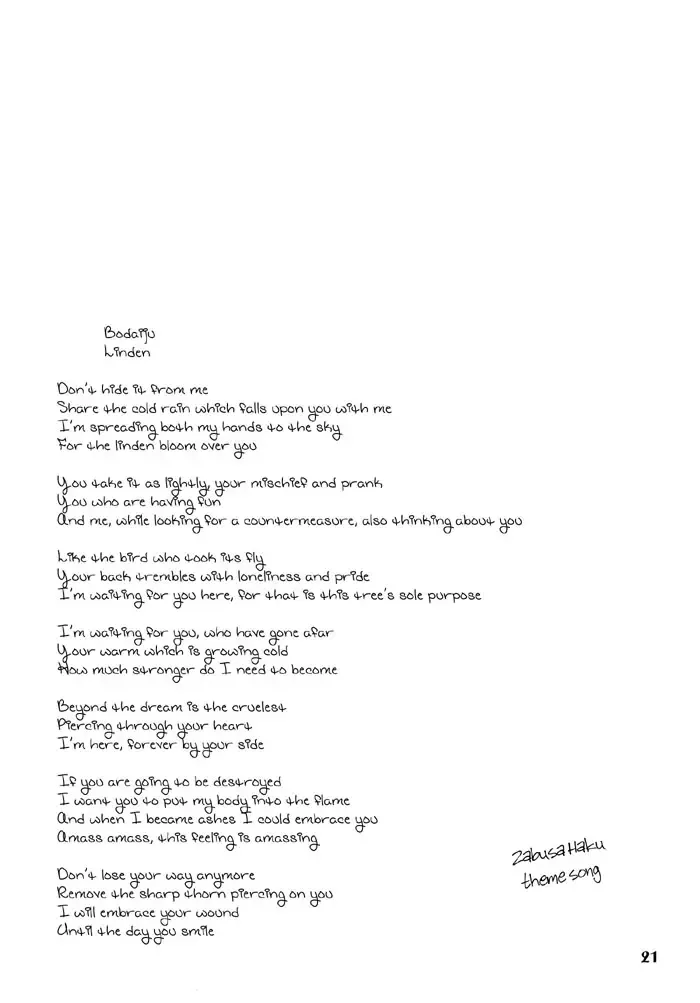 Bodaiju
Linden
Don't hide it from me
Share the cold rain which falls upon you with me
I'm spreading both my hands to the sky
For the linden bloom over you
You take it as lightly, your mischief and prank
You who are having fun
And me, while looking for a countermeasure, also thinking about you
Like the bird who took its fly
Your back trembles with loneliness and pride
I'm waiting for you here, for that is this tree's sole purpose
I'm waiting for you, who have gone afar
Your warm which is growing cold
How much stronger do I need to become
Beyond the dream is the cruelest
Piercing through your heart
I'm here, forever by your side
If you are going to be destroyed
I want you to put my body into the flame
And when I became ashes I could embrace you
Amass amass, this feeling is amassing
Don't lose your way anymore
Remove the sharp thorn piercing on you
I will embrace your wound
Until the day you smile
Zabusa Haku
theme song
21